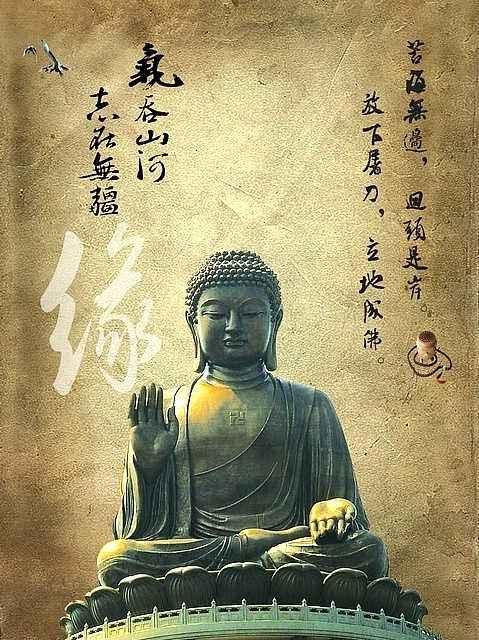 苦海無邊，回頭是岸。
放下屠刀，立地成佛。
氣吞山河
志在無疆
緣